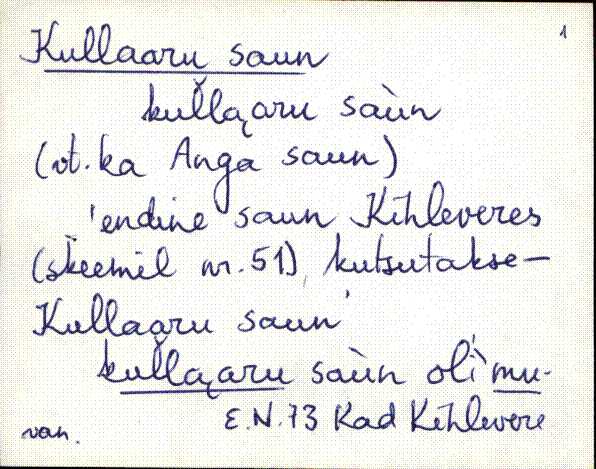 1
Kullaaru saun
kul̆laaru saùn
(vt. ka Anga saun)
'endine saun Kihleveres
(skeemil nr. 51), kutsutakse –
Kullaaru saun'
kul̆laaru saùn oli mu-
E.N. 73 Kad Kihlevere
van.